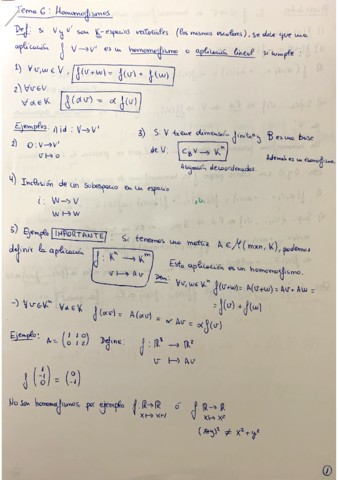 Tema 6: Homomorfismos
Def: Si V y V' son K-espacios vectoriales (los mismos escalares), se dice que una
aplicación f V → V' es un homomorfismo o aplicación lineal si cumple:
1) ∀v,w∈V, f(v+w) = f(v) + f(w)
2) ∀v∈V
∀α∈K f(αv) = α f(v)
Ejemplos: 1) id: V→V
2) O: V→V'
v↦0
3) Si V tiene dimensión finita y B es una base
de V. C_B V → K^n Además es un isomorfismo.
Asignación de coordenadas
4) Inclusión de un subespacio en un espacio
i: W → V
w ↦ w
5) Ejemplo IMPORTANTE: Si tenemos una matriz A ∈ M(m×n, K), podemos
definir la aplicación f: K^n → K^m
v ↦ Av
Esta aplicación es un homomorfismo.
Dem: ∀v,w∈K^n f(v+w) = A(v+w) = Av + Aw =
= f(v) + f(w)
→) ∀v∈K^n ∀α∈K f(αv) = A(αv) = α Av = α f(v)
Ejemplo: A = (1 1 0 / 0 1 2) Define f: R^3 → R^2
v ↦ Av
f (1 / -1 / 0) = (0 / -1)
No son homomorfismos por ejemplo f: R→R ó f R→R
x↦x+1 x↦x²
(x+y)² ≠ x²+y²
1